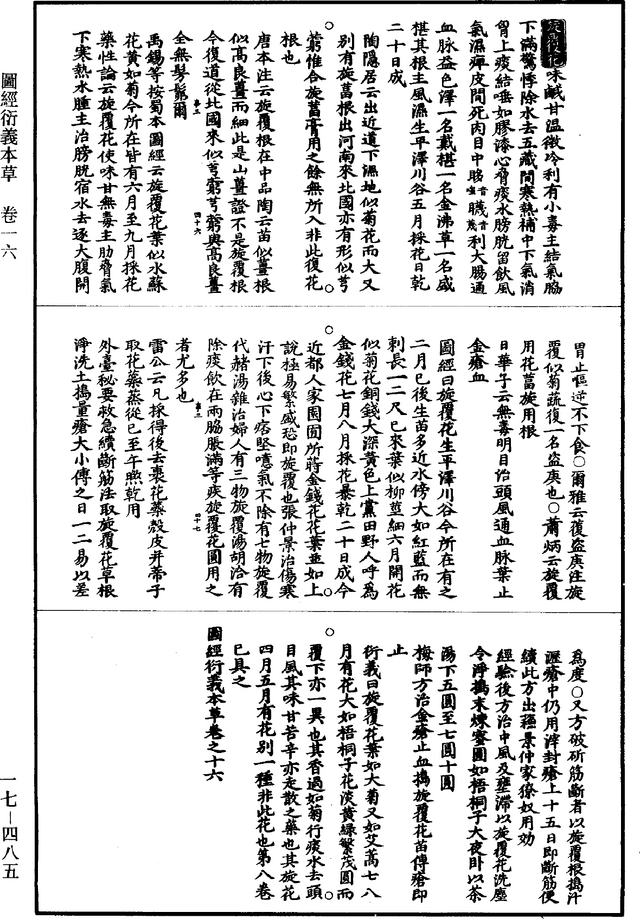 圖經衍義本草　卷一六
旋覆花味鹹甘溫微冷利有小毒主結氣脇
下滿驚悸除水去五藏間寒熱補中下氣消
胷上痰結唾如膠漆心脅痰水膀胱留飲風
氣濕痺皮間死肉目中眵䁾利大腸通
血脉益色澤一名戴椹一名金沸草一名盛
椹其根主風濕生平澤川谷五月採花日乾
二十日成
陶隱居云出近道下濕地似菊花而大又
別有旋葍根出河南來北國亦有形似芎
藭惟合旋葍膏用之餘無所入非此復花
根也
唐本注云旋覆根在中品陶云苗似薑根
似高良薑而細此是山薑證不是旋覆根
今復道從北國來似芎藭芎藭與高良薑
全無髣髴爾
禹錫等按蜀本圖經云旋覆花葉似水蘇
花黄如菊今所在皆有六月至九月採花
藥性論云旋覆花使味甘無毒主肋脅氣
下寒熱水腫主治膀胱宿水去逐大腹開
胃止嘔逆不下食○爾雅云覆盜庚注旋
覆似菊蔬復一名盜庚也○蕭炳云旋覆
用花葍旋用根
日華子云無毒明目治頭風通血脉葉止
金瘡血
圖經曰旋覆花生平澤川谷今所在有之
二月已後生苗多近水傍大如紅藍而無
刺長一二尺已來葉似柳莖細六月開花
似菊花銅錢大深黄色上黨田野人呼爲
金錢花七月八月採花暴乾二十日成今
近都人家園囿所蒔金錢花花葉並如上
說極易繁盛恐即旋覆也張仲景治傷寒
汗下後心下痞堅噫氣不除有七物旋覆
代赭湯雜治婦人有三物旋覆湯胡洽有
除痰飲在兩脇脹滿等疾旋覆花圓用之
者尤多也
雷公云凡採得後去裹花蘂殻皮并蒂子
取花蘂蒸從巳至午曬乾用
外臺秘要救急續斷筋法取旋覆花草根
淨洗土搗量瘡大小傅之日一二易以差
爲度○又方破斫筋斷者以旋覆根搗汁
瀝瘡中仍用滓封瘡上十五日即斷筋便
續此方出蘇景仲家獠奴用効
經驗後方治中風及壅滯以旋覆花洗塵
令淨搗末煉蜜圓如梧桐子大夜卧以茶
湯下五圓至七圓十圓
梅師方治金瘡止血搗旋覆花苗傅瘡即
止
衍義曰旋覆花葉如大菊又如艾蒿七八
月有花大如梧桐子花淡黄綠繁茂圓而
覆下亦一異也其香過如菊行痰水去頭
目風其味甘苦辛亦走散之藥也其旋花
四月五月有花別一種非此花也第八卷
已具之
圖經衍義本草卷之十六
一七－四八五